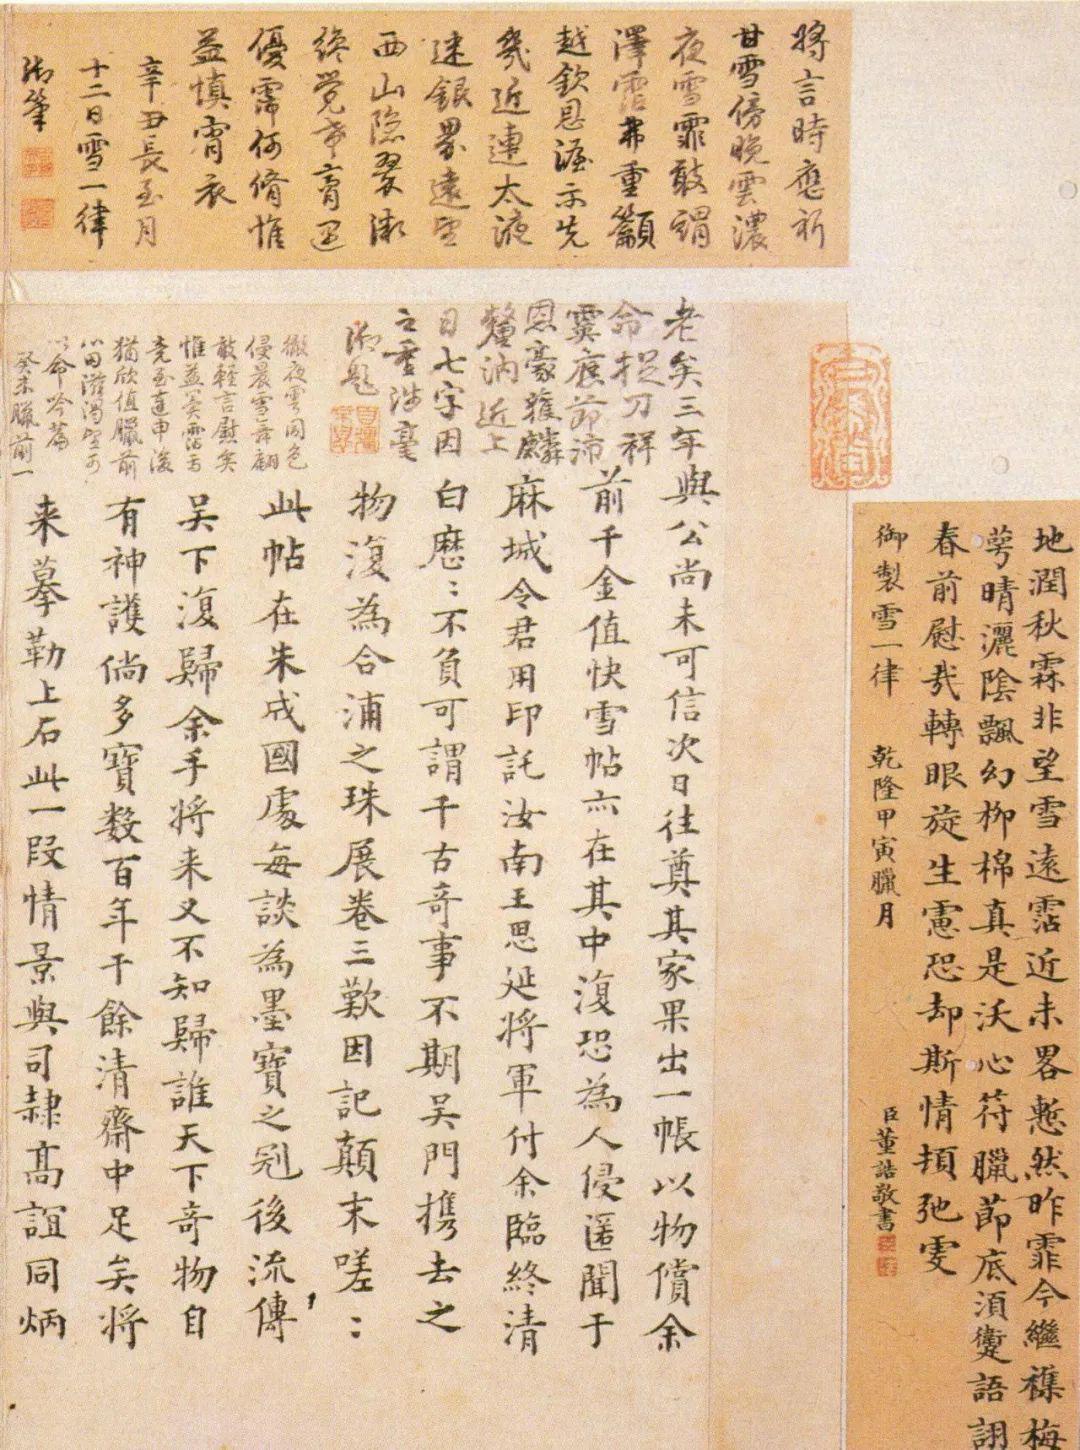 將言時應祈
甘雪傍晚雲濃
夜雪霏敢謂
澤霑弗重籲
越欽恩渥示先
幾近連太液
迷銀界遠望
西山隐翠微
終覺幸膏逕
優霑何脩惟
益慎宵衣
辛丑長至月
十二日雪一律
御筆
地潤秋霖非望雪遠霑近未畧慙然昨霏今繼襍梅
萼晴灑陰飄幻柳棉真是沃心符臘節底須躗語詡
春前慰哉轉眼旋生慮恐却斯情頓弛雯
御製雪一律 乾隆甲寅臘月
臣董誥敬書
老矣三年與公尚未可信次日往奠其家果出一帳以物償余
命捉刀祥
霙應節沛
前千金值快雪帖亦在其中復恐為人侵匿聞于
恩豪獲麟
釐汭近上
麻城令君用印託汝南王思延將軍付余臨終清
目七字因
白歷歷不負可謂千古奇事不期吳門携去之
御題
物復為合浦之珠展卷三歎因記顛末嗟嗟
此帖在朱成國處每談為墨寶之冠後流傳
吳下復歸余手將来又不知歸誰天下奇物自
有神護倘多寶数百年于餘清齋中足矣將
来摹勒上石此一段情景與司隸高誼同炳
徹夜雲同色
侵晨雪舞翩
敢輕言慰矣
惟益冀霑焉
竟至連申後
猶欣值臘前
心田滋渴望可
以命吟篇
癸未臘前一